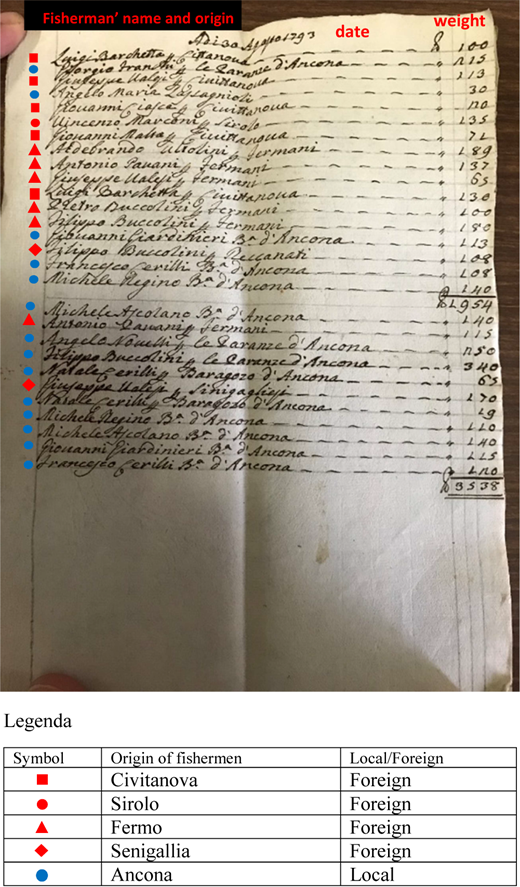 Fisherman' name and origin
date
weight
Adi 30 Agosto 1793
Luigi Barchetta Civitanova 100
Giorgio le Paranze d'Ancona
Giuseppe Civittanova 113
Angelo Maria 30
Giovanni Civittanova
Vincenzo Marconi Sirolo 135
Giovanni Civittanova 71
Aldebrando Fermani 189
Antonio Fermani 137
Giuseppe Fermani 65
Luigi Barchetta Civittanova 130
Pietro Buccolini Fermani 100
Filippo Buccolini Fermani 180
Giovanni Bª d'Ancona 113
Filippo Buccolini Reccanati 108
Francesco Cerilli Bª d'Ancona 108
Michele Regino Bª d'Ancona 140
1954
Michele Ascolano Bª d'Ancona 140
Antonio Fermani 115
Angelo Novelli le Paranze d'Ancona
Filippo Buccolini le Paranze d'Ancona 340
Natale Cerilli Baragozo d'Ancona 65
Giuseppe 170
Natale Cerilli Baragozo d'Ancona 19
Michele Regino Bª d'Ancona 110
Michele Ascolano Bª d'Ancona 140
Giovanni Giardinieri Bª d'Ancona 115
Francesco Cerilli Bª d'Ancona
3538
Legenda
Symbol Origin of fishermen Local/Foreign
Civitanova Foreign
Sirolo Foreign
Fermo Foreign
Senigallia Foreign
Ancona Local